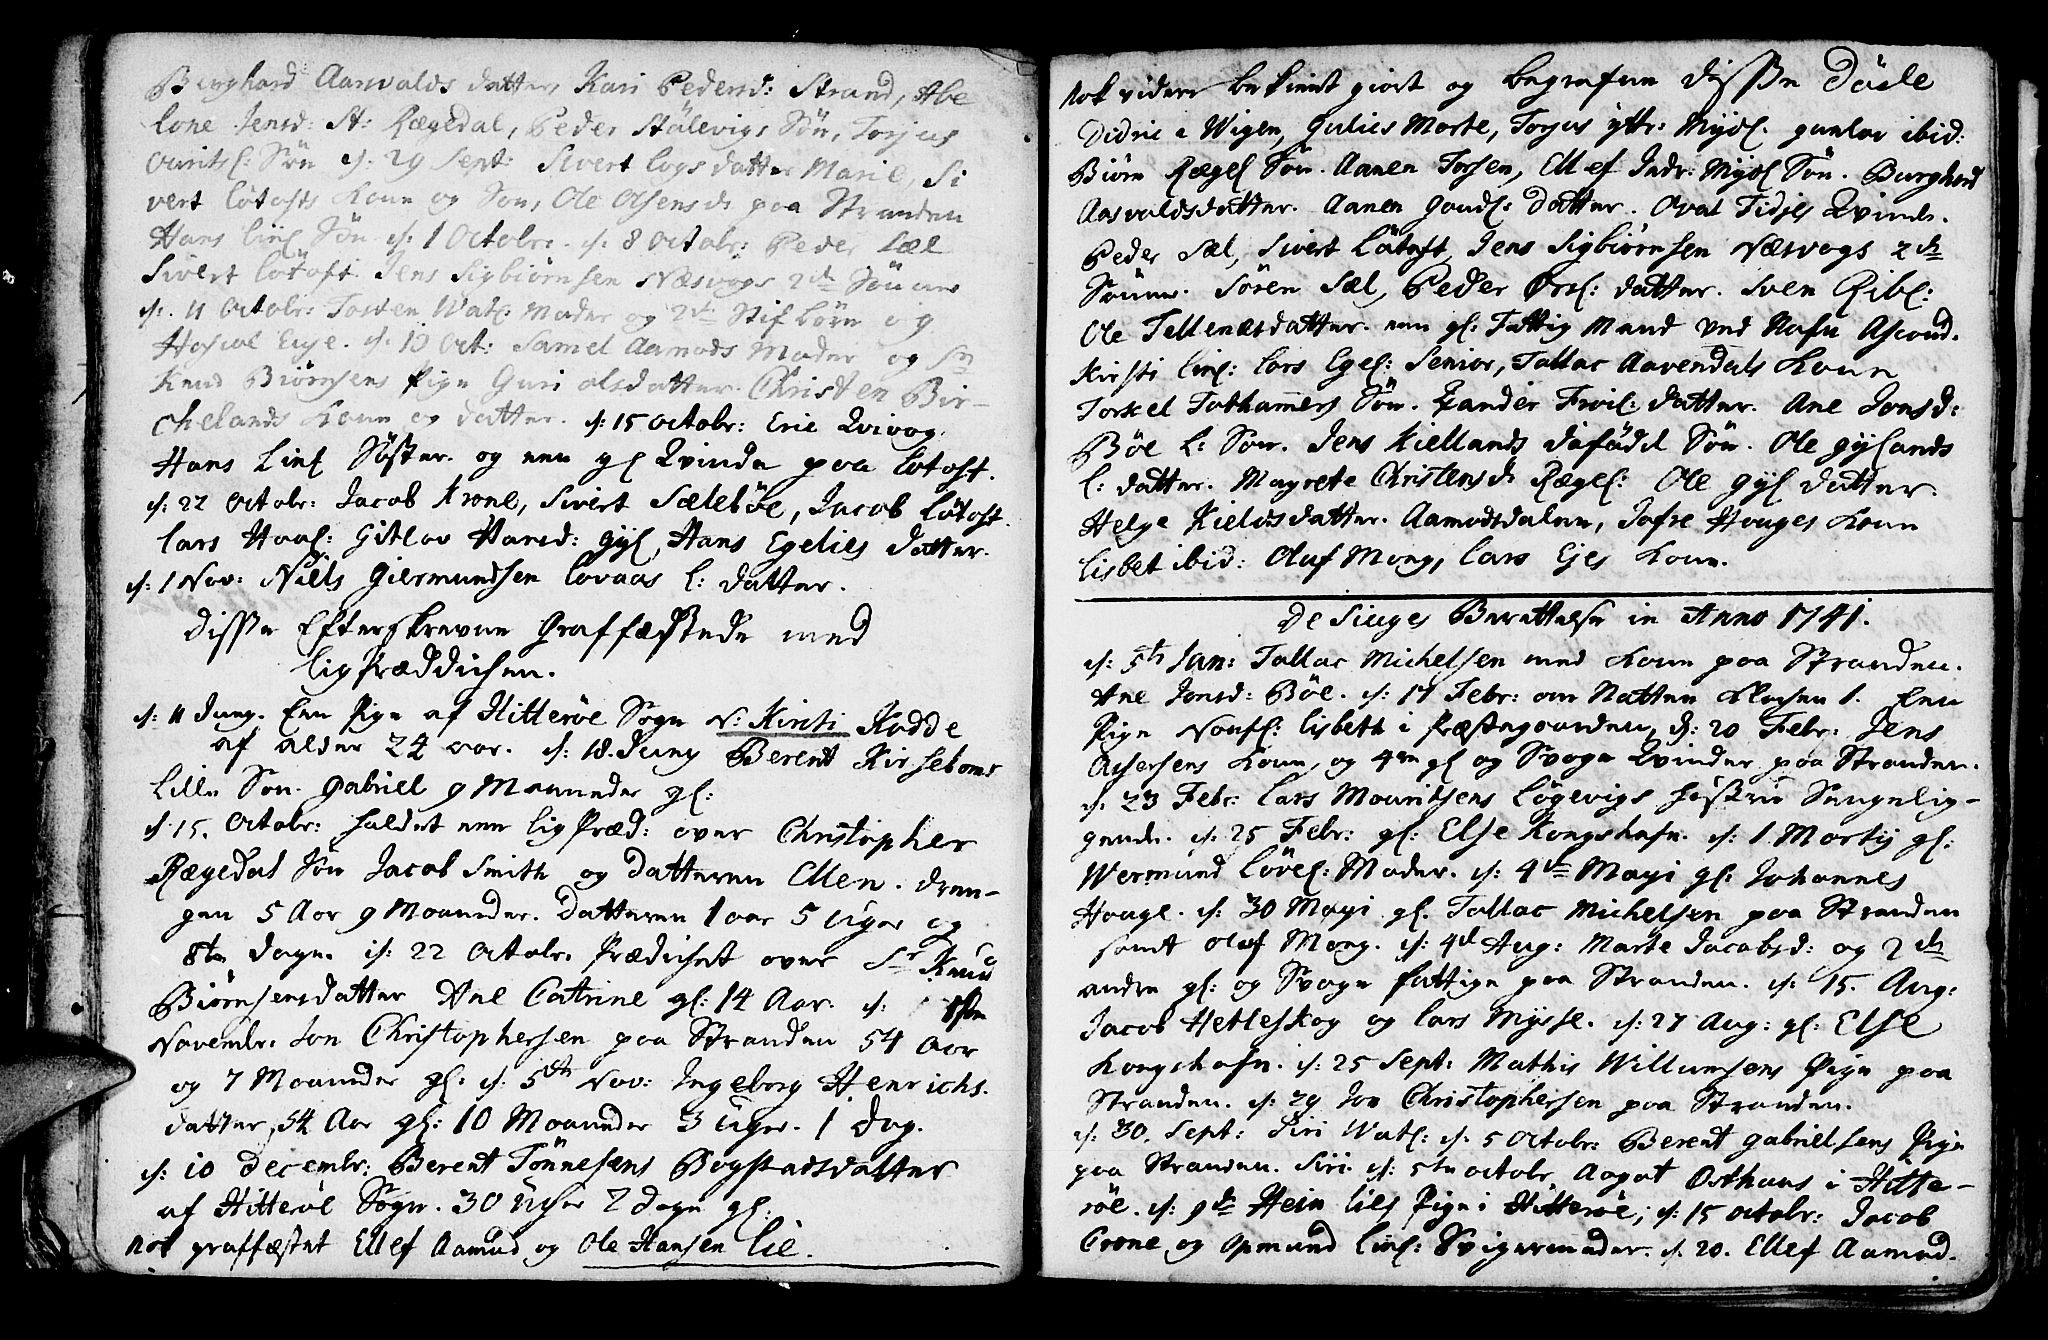 Burghard Aasvalds datter, Kari Pedersd: Strand, Abe
lone Jensd: St: Rægedal, Peder Stölevigs Sön, Torjus
Søn d: 29 Sept: Sivert logs datter Marie, Si
vert løtofts Kone og Søn, Ole Olsens d: paa Stranden
Hans lief Sön d: 1 Octobr: d: 8 Octobr: Peder Sæl
Sivert løtoft Jens Sigbiørnsen Næsvogs 2de Sönner
d: 11 Octobr: Torsten Watl: Moder og 2de Stif börn og
d: 10 Oct: Samel Aamods Moder og Sr
Knud Biörnsens Pige Guri olsdatter. Christen Bir-
chelands Kone og datter. d: 15 octobr: Eric Qvivog.
Hans Lief Söster. og een gl Qvinde paa løtoft.
d: 22 Octobr: Jacob Krone, Sivert Sælebøe, Jacob løtoft.
lars Haaf: Gitlov Hansd: gyl, Hans Egelies datter.
d: 1 Nov: Niels Giermundsen lovaas l: datter.
disse Efterskrevne Graffæstede med
ligprædichen.
d: 11 Juny. Een Pige af Hitteröe Sogn N: Kirsti Rodde
af alder 24 aar. d: 18. Juny Berent Kirseboms
Lille Søn. Gabriel 9 Maaneder gl:
d. 15. Octobr: holdet een ligPræd: over Christopher
Rægedal Søn Jacob Smith og datteren Ellen. dren-
gen 5 Aar 9 Maaneder. datteren 1 aar 5 uger og
8te dage. d: 22 Octobr. Prædichet over Sr Knud
Biørnsensdatter Ane Catrine gl: 14 Aar. d: 1ste
Novembr. Jon Christophersen paa Stranden 54 Aar
og 7 Maaneder gl: d: 5te Nov: Ingeborg Henrichs.
datter, 54 Aar gl: 10 Maaneder 3 uger. 1 dag.
d: 10 Decembr: Berent Tönnesens Bogstadsdatter
af Hitteröe Sogn. 30 Uger 2 dage gl.
nok graffæstet Ellef Aamud og Ole Hansen Lie.
nok videre bekiendt giort og begrafven disse Døde
Didric i Wigen, Gulies Marte, Torjus ytr: Mydl. gunlov ibid:
Biørn Rægel Søn. Aanen Torsen, Ellef Indr: Mydl Sön. Burghard
Aasvaldsdatter. Aanen datter. Oval Tidjes Qvinde.
Peder Sæl, Sivert Løtoft, Jens Sigbiørnsen Næsvogs 2de
Sönner. Sören Sæl, Peder datter. Sven Ribl:
Ole Tellenesdatter. een gl: Fattig Mand ved Nafn Asoud.
Kirsti lief: lars Egel: Senior, Tallac Aavendals Kone
Torkel Tothammers Sön. Zander Froil: datter. Ane Jonsd:
Böe l: Søn. Jens Kiellands dødfödd Søn. Ole gylands
l: datter. Magrete Christensd: Rægel: Ole gyl datter.
Helge Kieldsdatter. Aamodsdalen, Jofre Houges Kone
lisbet ibid: Oluf Mong, lars Ejes Kone.
De Siuges Berettelse in Anno 1741.
d: 5te Jan: Tallac Michelsen med Kone paa Stranden.
Ane Jonsd: Böe. d: 17 Febr: om Natten klochen 1. Een
Pige Nonfl: lisbeth i Præstegaarden, d: 20 Febr: Jens
Assersens Kone, og 4re gl og Svage Qvinder paa Stranden.
d. 23 Febr: lars Mouritsens Lögevigs höstrue Sengelig-
gende. d: 25 Febr: gl: Else Kongshafn. d: 1 Marty gl:
Wermund Løvel: Moder. d: 4de Mayi gl: Johannes
Houge. d: 30 Mayi gl. Tallac Michelsen paa Stranden
samt oluf Mong. d: 4d Aug: Marte Jacobsd: og 2de
andre gl: og Svage fattige paa Stranden. d: 15. Aug:
Jacob Hetleskog og lars Mysse. d: 27 Aug: gl: Else
Kongshafn. d: 25 Sept: Mathis Willumsens Pige paa
Stranden. d: 29 Jon Christophersen paa Stranden.
d: 30. Sept: Siri Watl: d: 5 Octobr: Berent gabrielsens Pige
paa Stranden. Siri. d: 5te octobr. Aagot Osthuus i Hitte-
röe. d: 9de Hein lies Pige i Hitteröe, d: 15 octobr: Jacob
Crone og Opmund Lief: Svigermoder. d. 20. Ellef Aamud.